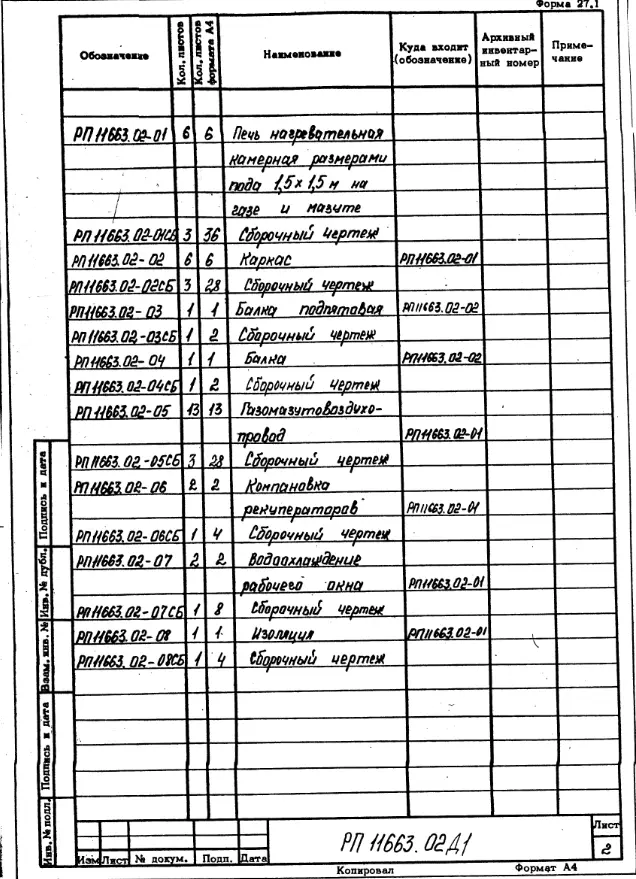 Форма 27.1
Обозначение | Кол. листов | Кол. листов формата А4 | Наименование | Куда входит (обозначение) | Архивный инвентарный номер | Примечание
РП 11663.02-01 6 6 Печь нагревательная
камерная размерами
пода 1,5 х 1,5 м на
газе и мазуте
РП 11663.02-01СБ 3 36 Сборочный чертеж
РП 11663.02-02 6 6 Каркас РП 11663.02-01
РП 11663.02-02СБ 3 28 Сборочный чертеж
РП 11663.02-03 1 1 Балка подпятовая РП 11663.02-02
РП 11663.02-03СБ 1 2 Сборочный чертеж
РП 11663.02-04 1 1 Балка РП 11663.02-02
РП 11663.02-04СБ 1 2 Сборочный чертеж
РП 11663.02-05 13 13 Газомазутовоздухо-
провод РП 11663.02-01
РП 11663.02-05СБ 3 28 Сборочный чертеж
РП 11663.02-06 2 2 Компановка
рекуператоров РП 11663.02-01
РП 11663.02-06СБ 1 4 Сборочный чертеж
РП 11663.02-07 2 2 Водоохлаждение
рабочего окна РП 11663.02-01
РП 11663.02-07СБ 1 8 Сборочный чертеж
РП 11663.02-08 1 1 Изоляция РП 11663.02-01
РП 11663.02-08СБ 1 4 Сборочный чертеж
Подпись и дата
Инв. № дубл.
Взам. инв. №
Подпись и дата
Инв. № подл.
Изм Лист № докум. Подп. Дата
РП 11663.02Д1
Лист
2
Копировал Формат А4